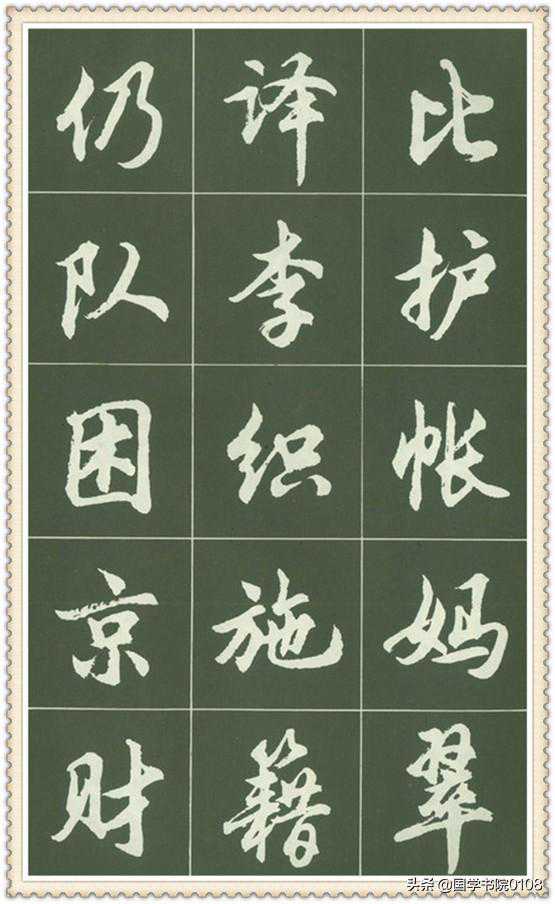 比护帐妈翠
译李织施籍
仍队困京财
头条 @国学书院0108